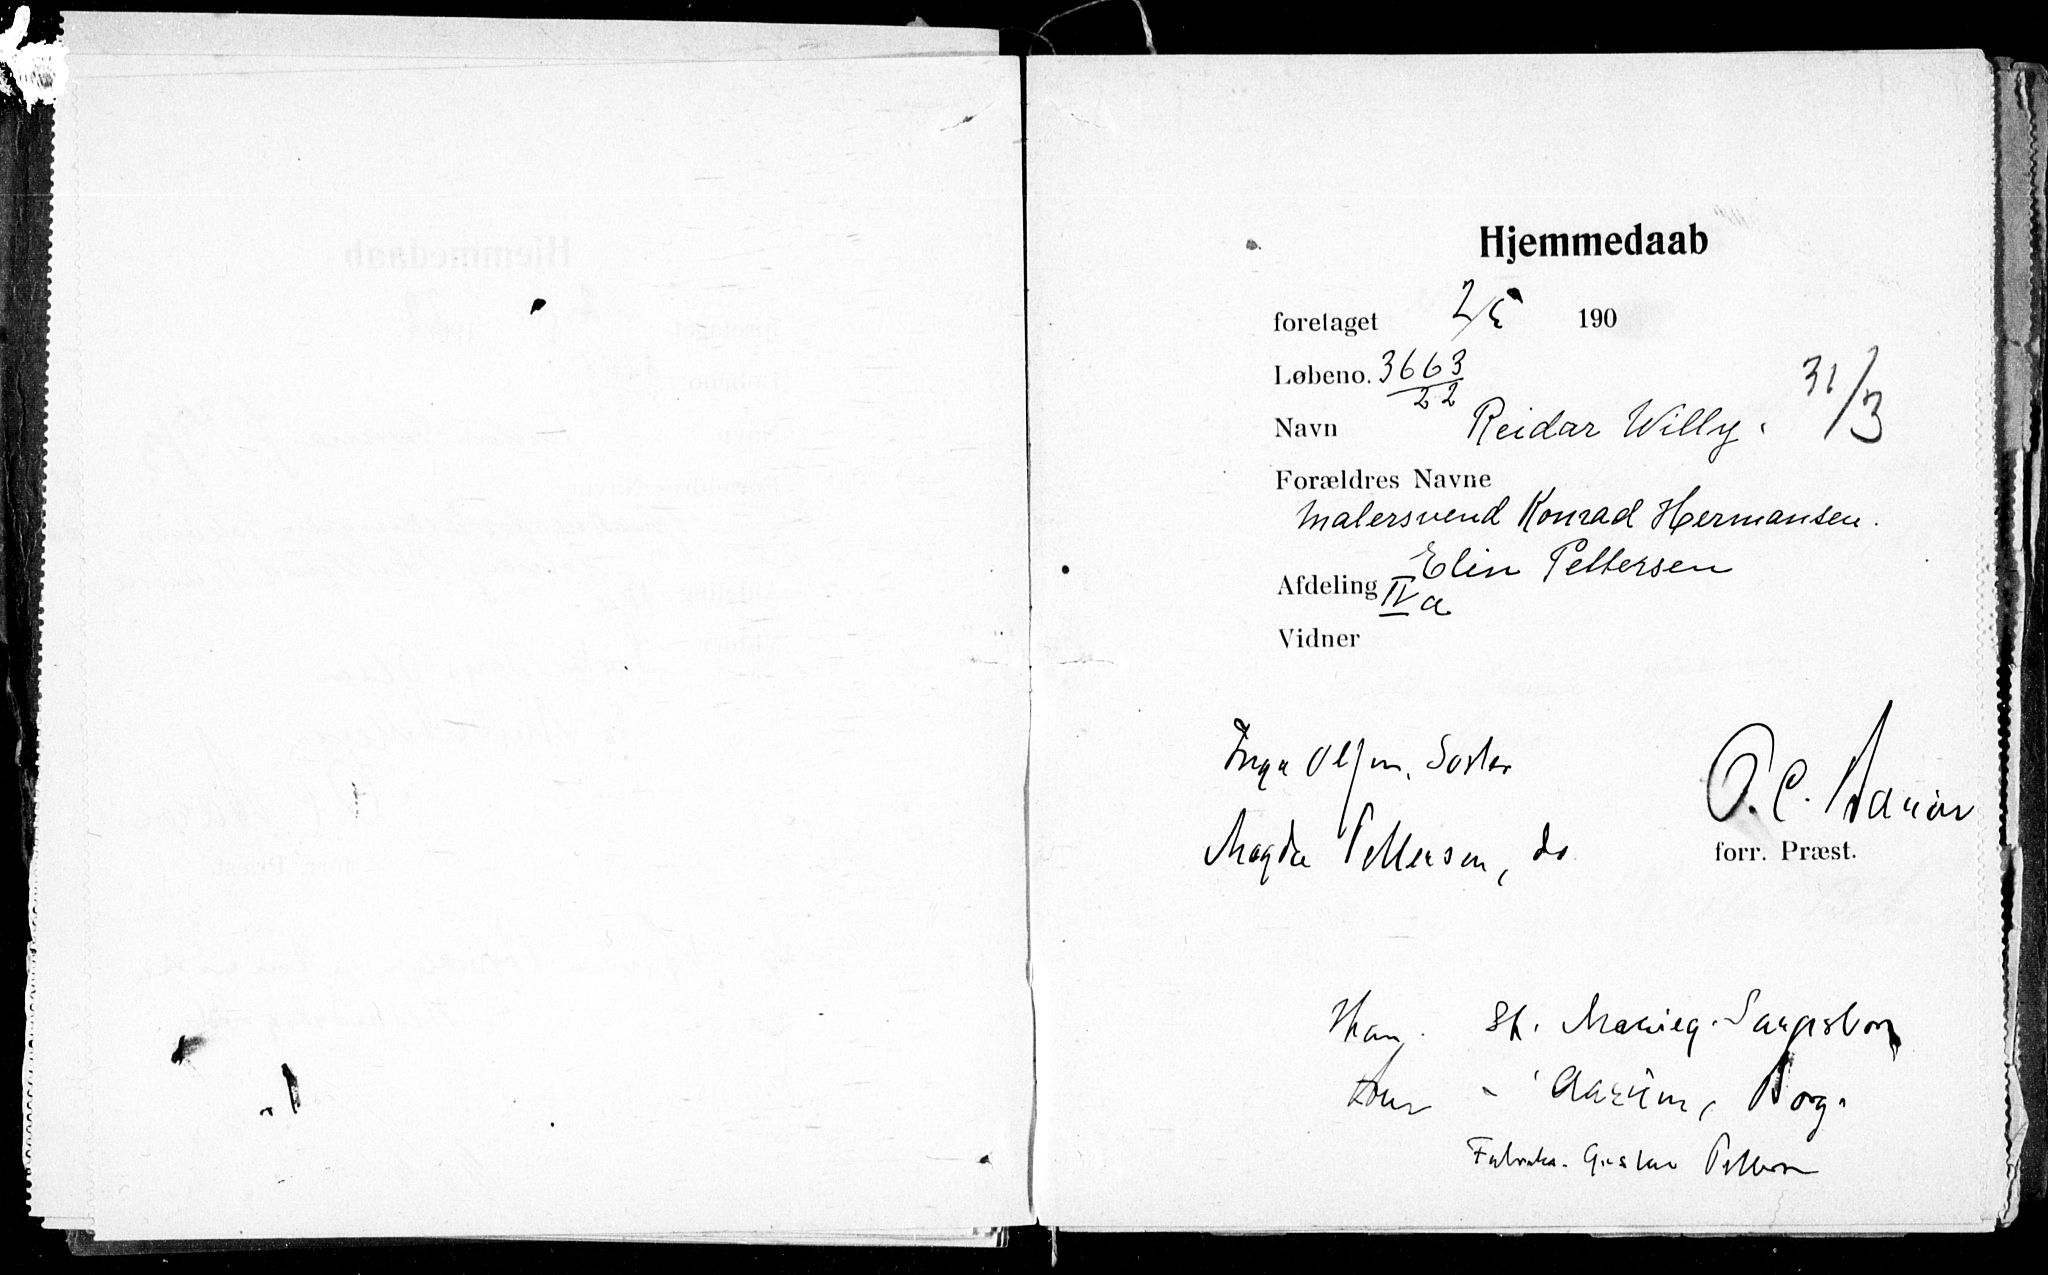 Hjemmedaab
foretaget 2/5 190
Løbeno. 3663/22
Navn Reidar Willy. 31/3
Forældres Navne
Malersvend Konrad Hermansen.
Elin Pettersen
Afdeling IVa
Vidner
Inga Olsen, Søster
Magda Pettersen, do
O. C.
forr. Præst.
Han St. Marieg. Sarpsborg
Hun - Aarum, Borg.
Gustav Pettersen